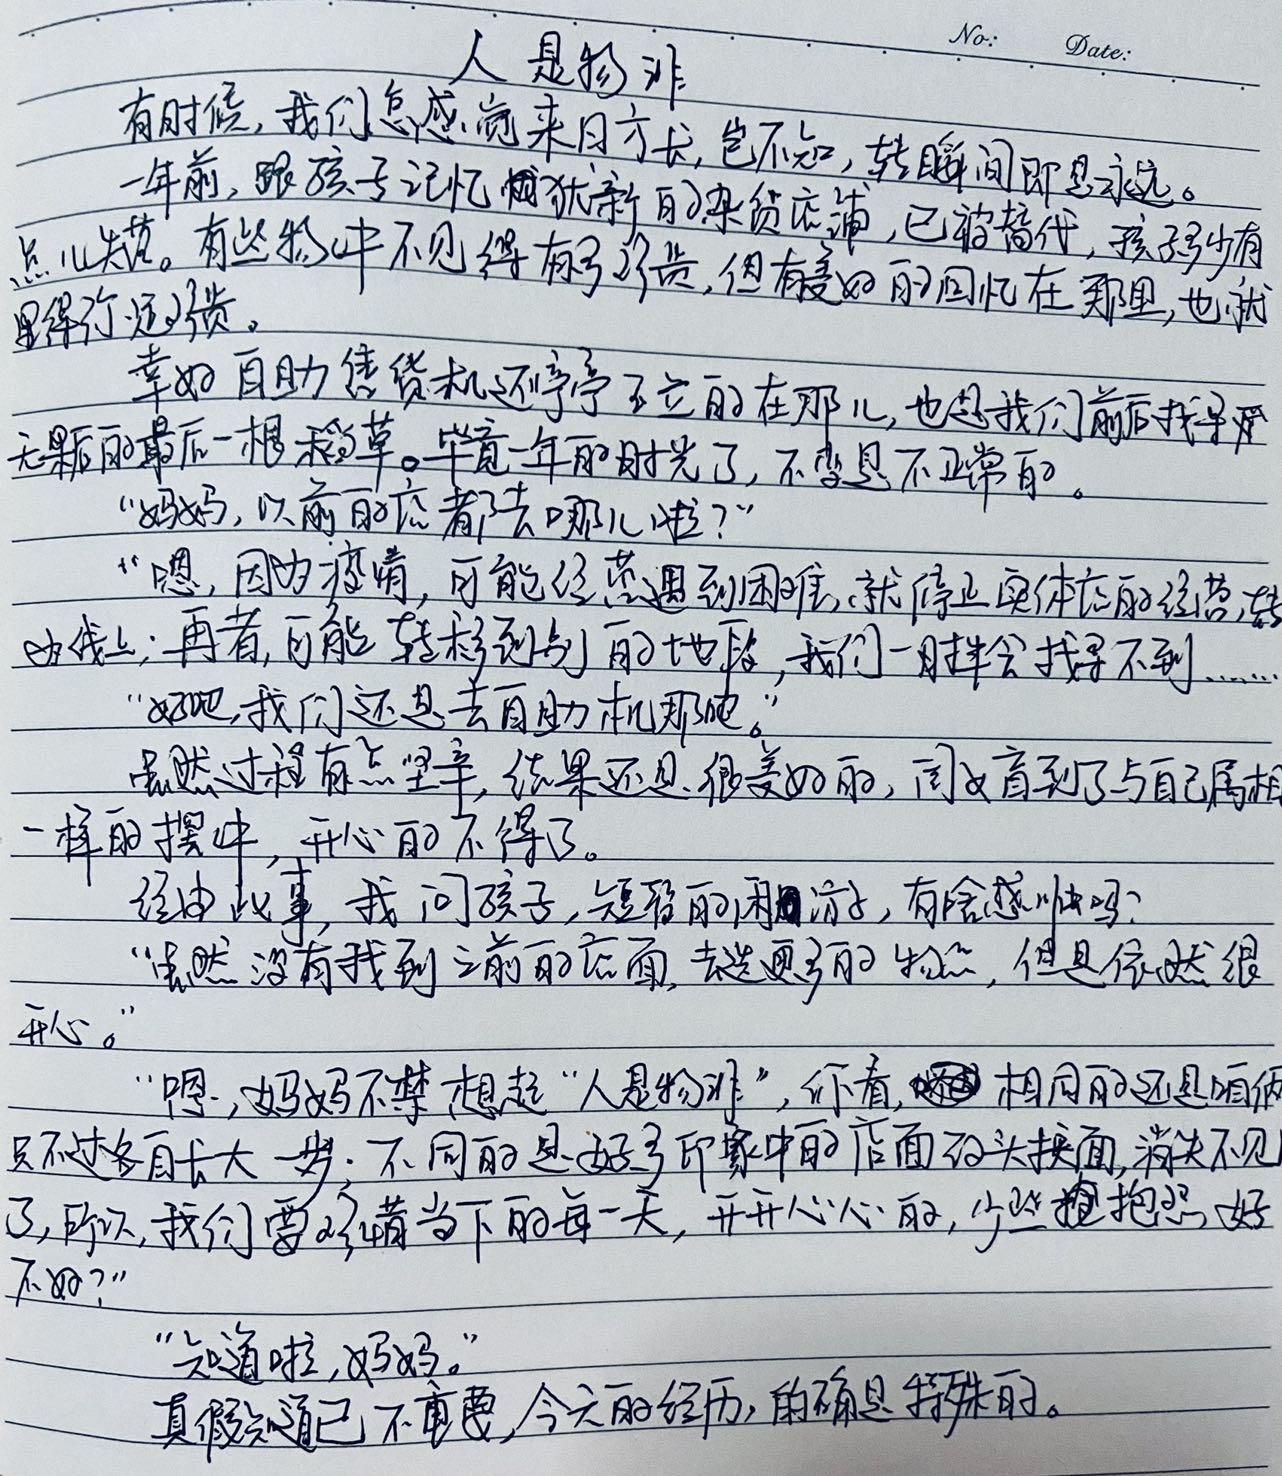 No: Date:
人是物非
有时候，我们总感觉来日方长，岂不知，转瞬间即是永远。
一年前，跟孩子记忆犹新的杂货店铺，已被替代，孩子多少有
点儿失落。有些物件不见得有多珍贵，但有美好的回忆在那里，也就
显得弥足珍贵。
幸好自助售货机还亭亭玉立的在那儿，也是我们前后找寻
无果后的最后一根稻草。毕竟一年的时光了，不变是不正常的。
“妈妈，以前的店都去哪儿啦？”
“嗯，因为疫情，可能经营遇到困难，就停止实体店的经营，转
为线上；再者，可能转移到别的地段，我们一时半会找寻不到……
“好吧，我们还是去自助机那吧。”
虽然过程有点坚辛，结果还是很美好的，闺女盲到了与自己属相
一样的摆件，开心的不得了。
经由此事，我问孩子，短暂的闲游，有啥感悟吗？
“虽然没有找到之前的店面，去选更多的物品，但是依然很
开心。”
“嗯，妈妈不禁想起“人是物非”，你看，相同的还是咱俩
只不过各自长大一岁；不同的是好多印象中的店面改头换面，消失不见
了，所以，我们要珍惜当下的每一天，开开心心的，少些抱怨，好
不好？”
“知道啦，妈妈。”
真假知道已不重要，今天的经历，的确是特殊的。